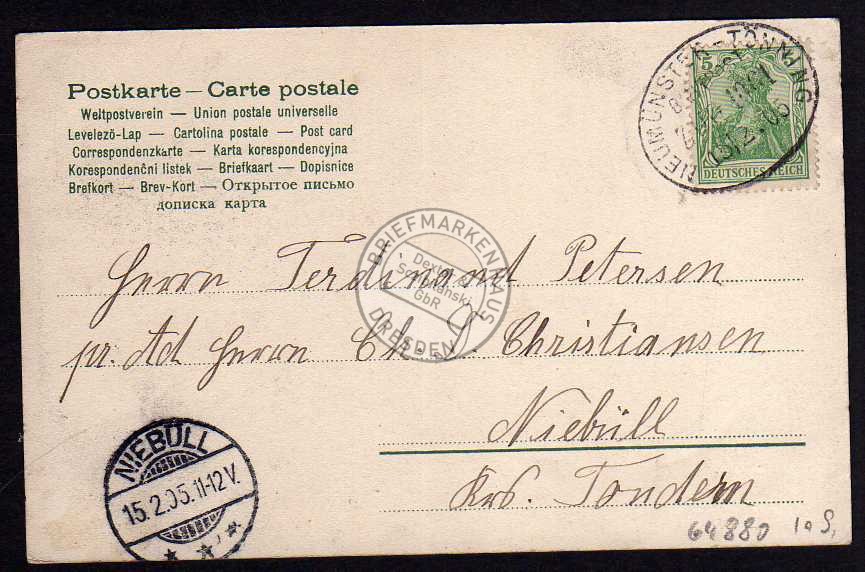 Postkarte — Carte postale
Weltpostverein — Union postale universelle
Levelező-Lap — Cartolina postale — Post card
Correspondenzkarte — Karta korespondencyjna
Korespondenční listek — Briefkaart — Dopisnice
Brefkort — Brev-Kort — Открытое письмо
дописка карта
NEUMÜNSTER-TÖNNING
5
DEUTSCHES REICH
BRIEFMARKENHAUS
DRESDEN
GbR
Herrn Ferdinand Petersen
pr. Ad Herrn Chr. Christiansen
Niebüll
Krs. Tondern
NIEBÜLL
15.2.05.11-12V.
64880 1a S,